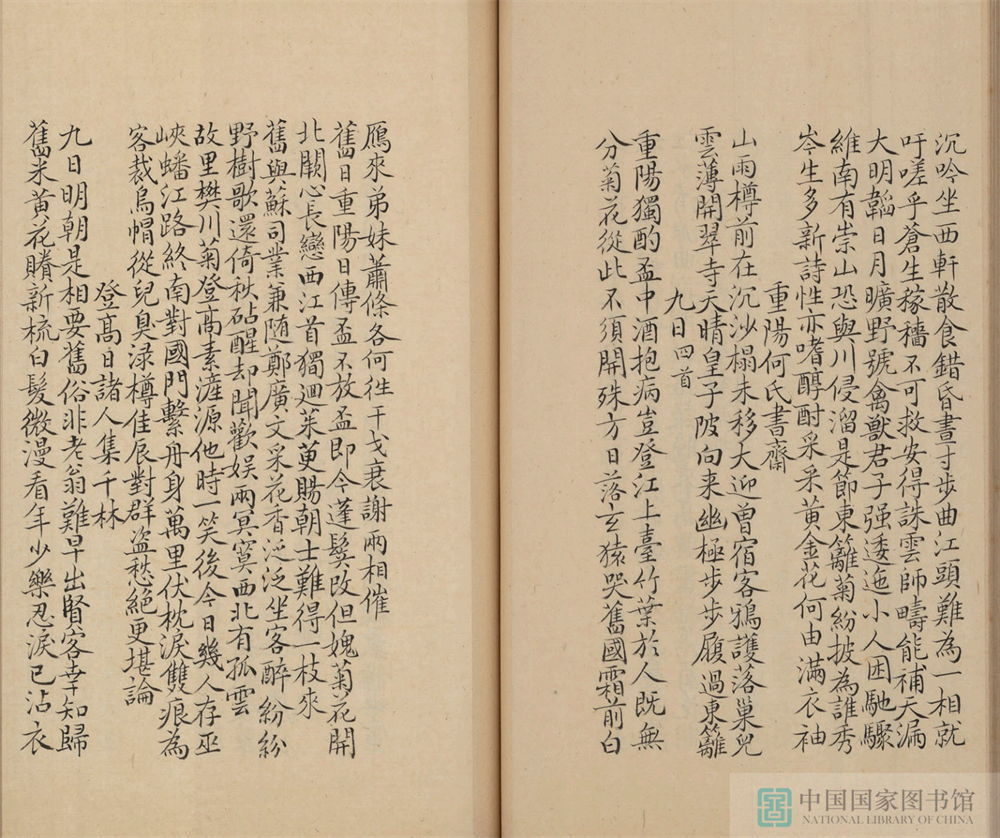 沉吟坐西軒散食錯昏晝寸步曲江頭難為一相就
吁嗟乎蒼生稼穡不可救安得誅雲師疇能補天漏
大明韜日月曠野號禽獸君子强逶迤小人困馳驟
維南有崇山恐與川侵溜是節東籬菊紛披為誰秀
岑生多新詩性亦嗜醇酎采采黃金花何由滿衣袖
重陽何氏書齋
山雨樽前在沉沙榻未移犬迎曾宿客鴉護落巢兒
雲薄開翠寺天晴皇子陂向来幽極步步履過東籬
九日四首
重陽獨酌盃中酒抱病豈登江上臺竹葉於人既無
分菊花從此不須開殊方日落玄猿哭舊國霜前白
鴈來弟妹蕭條各何徃干戈衰謝兩相催
舊日重陽日傳盃不放盃即今蓬鬓改但媿菊花開
北闕心長戀西江首獨迴茱萸賜朝士難得一枝來
舊與蘇司業兼随鄭廣文采花香泛泛坐客醉紛紛
野樹歌還倚秋砧醒却聞歡娱兩冥寞西北有孤雲
故里樊川菊登高素滻源他時一笑後今日幾人存巫
峽蟠江路終南對國門繫舟身萬里伏枕淚雙痕為
客裁烏帽從兒具渌樽佳辰對群盗愁絶更堪論
登高日諸人集千林
九日明朝是相要舊俗非老翁難早出賢客幸知歸
舊米黃花賸新梳白髮微漫看年少樂忍淚已沾衣
中国国家图书馆
NATIONAL LIBRARY OF CHINA